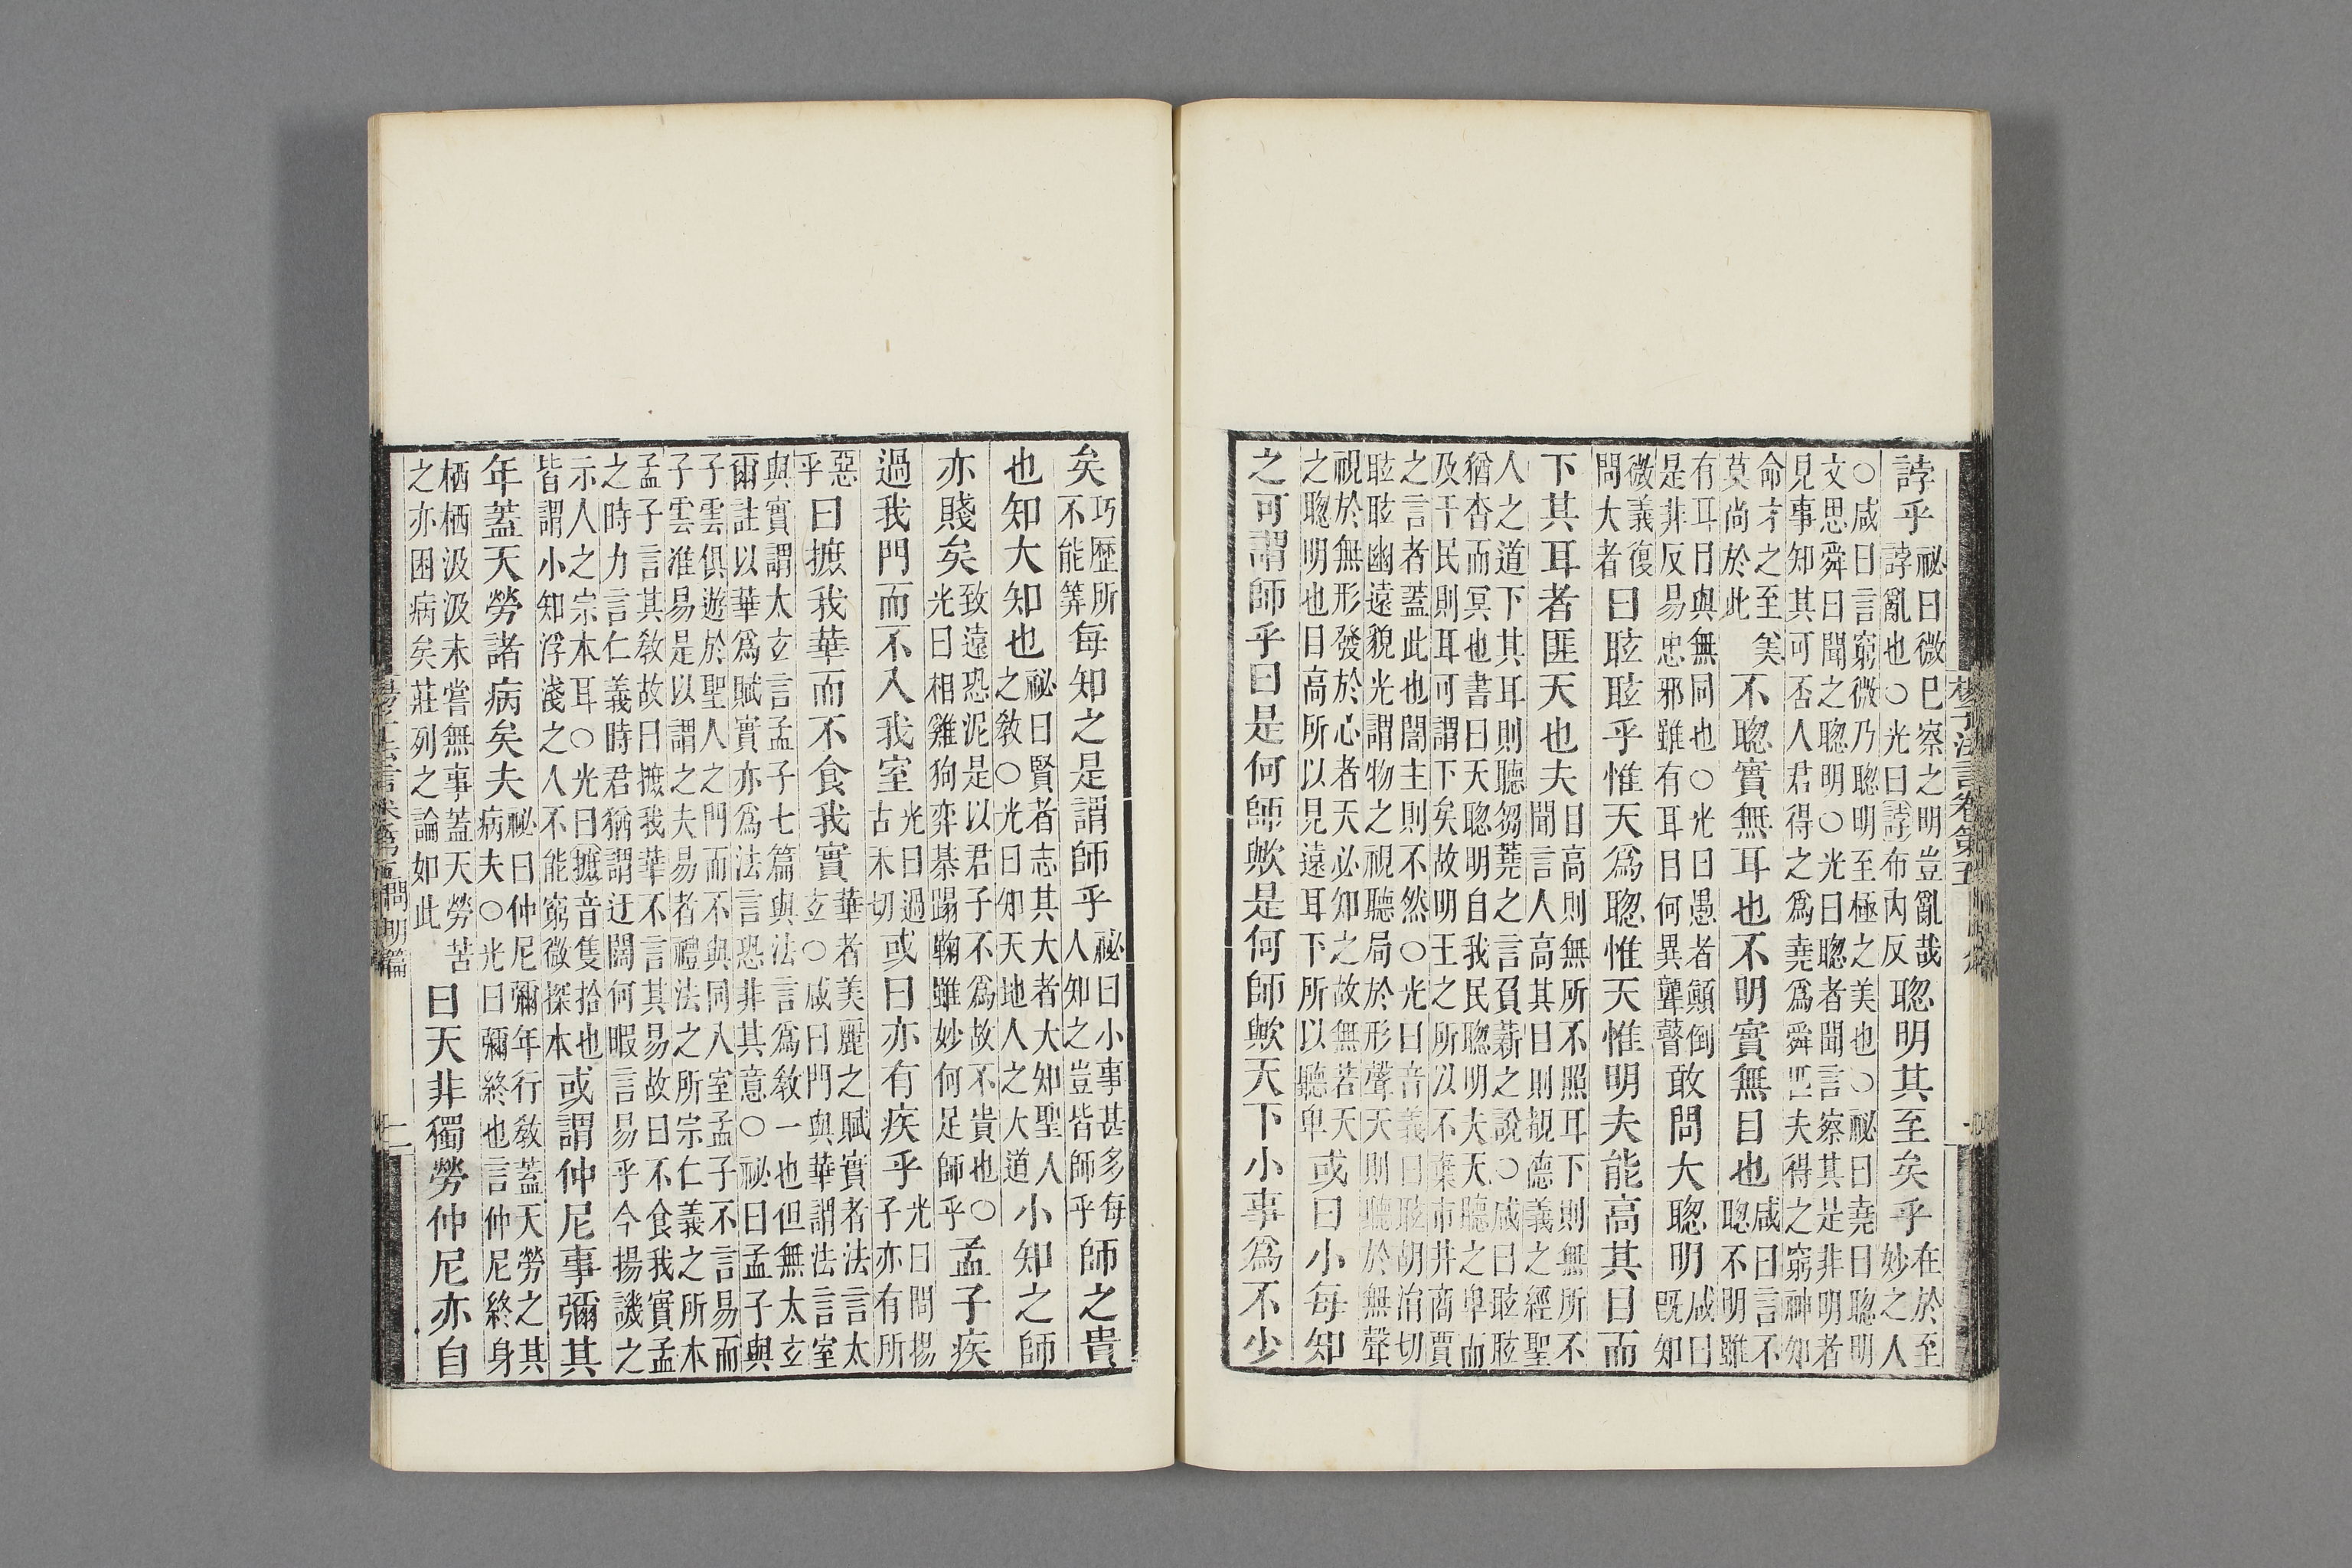 楊子法言卷第五
誖乎祕曰微已察之明豈亂哉
誖亂也○光曰誖布內反
聰明其至矣乎在於至
妙之人
○咸曰言窮微乃聰明至極之美也○祕曰堯曰聰明
文思舜曰聞之聰明○光曰聰者聞言察其是非明者
見事知其可否人君得之爲堯爲舜匹夫得之窮神知
命才之至美
莫尚於此
不聰實無耳也不明實無目也咸曰言不
聰不明雖
有耳目與無同也○光曰愚者顛倒
是非反易忠邪雖有耳目何異聾瞽
敢問大聰明咸曰
既知
微義復
問大者
曰眩眩乎惟天爲聰惟天惟明夫能高其目而
下其耳者匪天也夫目高則無所不照耳下則無所不
聞言人高其目則覩德義之經聖
人之道下其耳則聽芻蕘之言負薪之說○咸曰眩眩
猶杳而冥也書曰天聰明自我民聰明夫天聽之卑而
及于民則耳可謂下矣故明王之所以不棄市井商賈
之言者蓋此也闇主則不然○光曰音義曰眩胡涓切
眩眩幽遠貌光謂物之視聽局於形聲天則聽於無聲
視於無形發於心者天必知之故無若天
之聰明也目高所以見遠耳下所以聽卑
或曰小每知
之可謂師乎曰是何師歟是何師歟天下小事爲不少
矣巧歷所
不能筭
每知之是謂師乎祕曰小事甚多每
人知之豈皆師乎
師之貴
也知大知也祕曰賢者志其大者大知聖人
之教○光曰知天地人之大道
小知之師
亦賤矣致遠恐泥是以君子不爲故不貴也○
光曰相雞狗弈棊蹋鞠雖妙何足師乎
孟子疾
過我門而不入我室光曰過
古禾切
或曰亦有疾乎光曰問揚
子亦有所
惡
乎
曰摭我華而不食我實華者美麗之賦實者法言太
玄○咸曰門與華謂法言室
與實謂太玄言孟子七篇與法言爲教一也但無太玄
爾註以華爲賦實亦爲法言恐非其意○祕曰孟子與
子雲俱遊於聖人之門而不與同入室孟子不言易而
子雲准易是以謂之夫易者禮法之所宗仁義之所本
孟子言其教故曰摭我華不言其易故曰不食我實孟
之時力言仁義時君猶謂迂闊何暇言易乎今揚譏之
示人之宗本耳○光曰摭音隻拾也
皆謂小知浮淺之人不能窮微探本
或謂仲尼事彌其
年蓋天勞諸病矣夫祕曰仲尼彌年行教蓋天勞之其
病夫○光曰彌終也言仲尼終身
栖栖汲汲未嘗無事蓋天勞苦
之亦困病矣莊列之論如此
曰天非獨勞仲尼亦自
問明篇
二